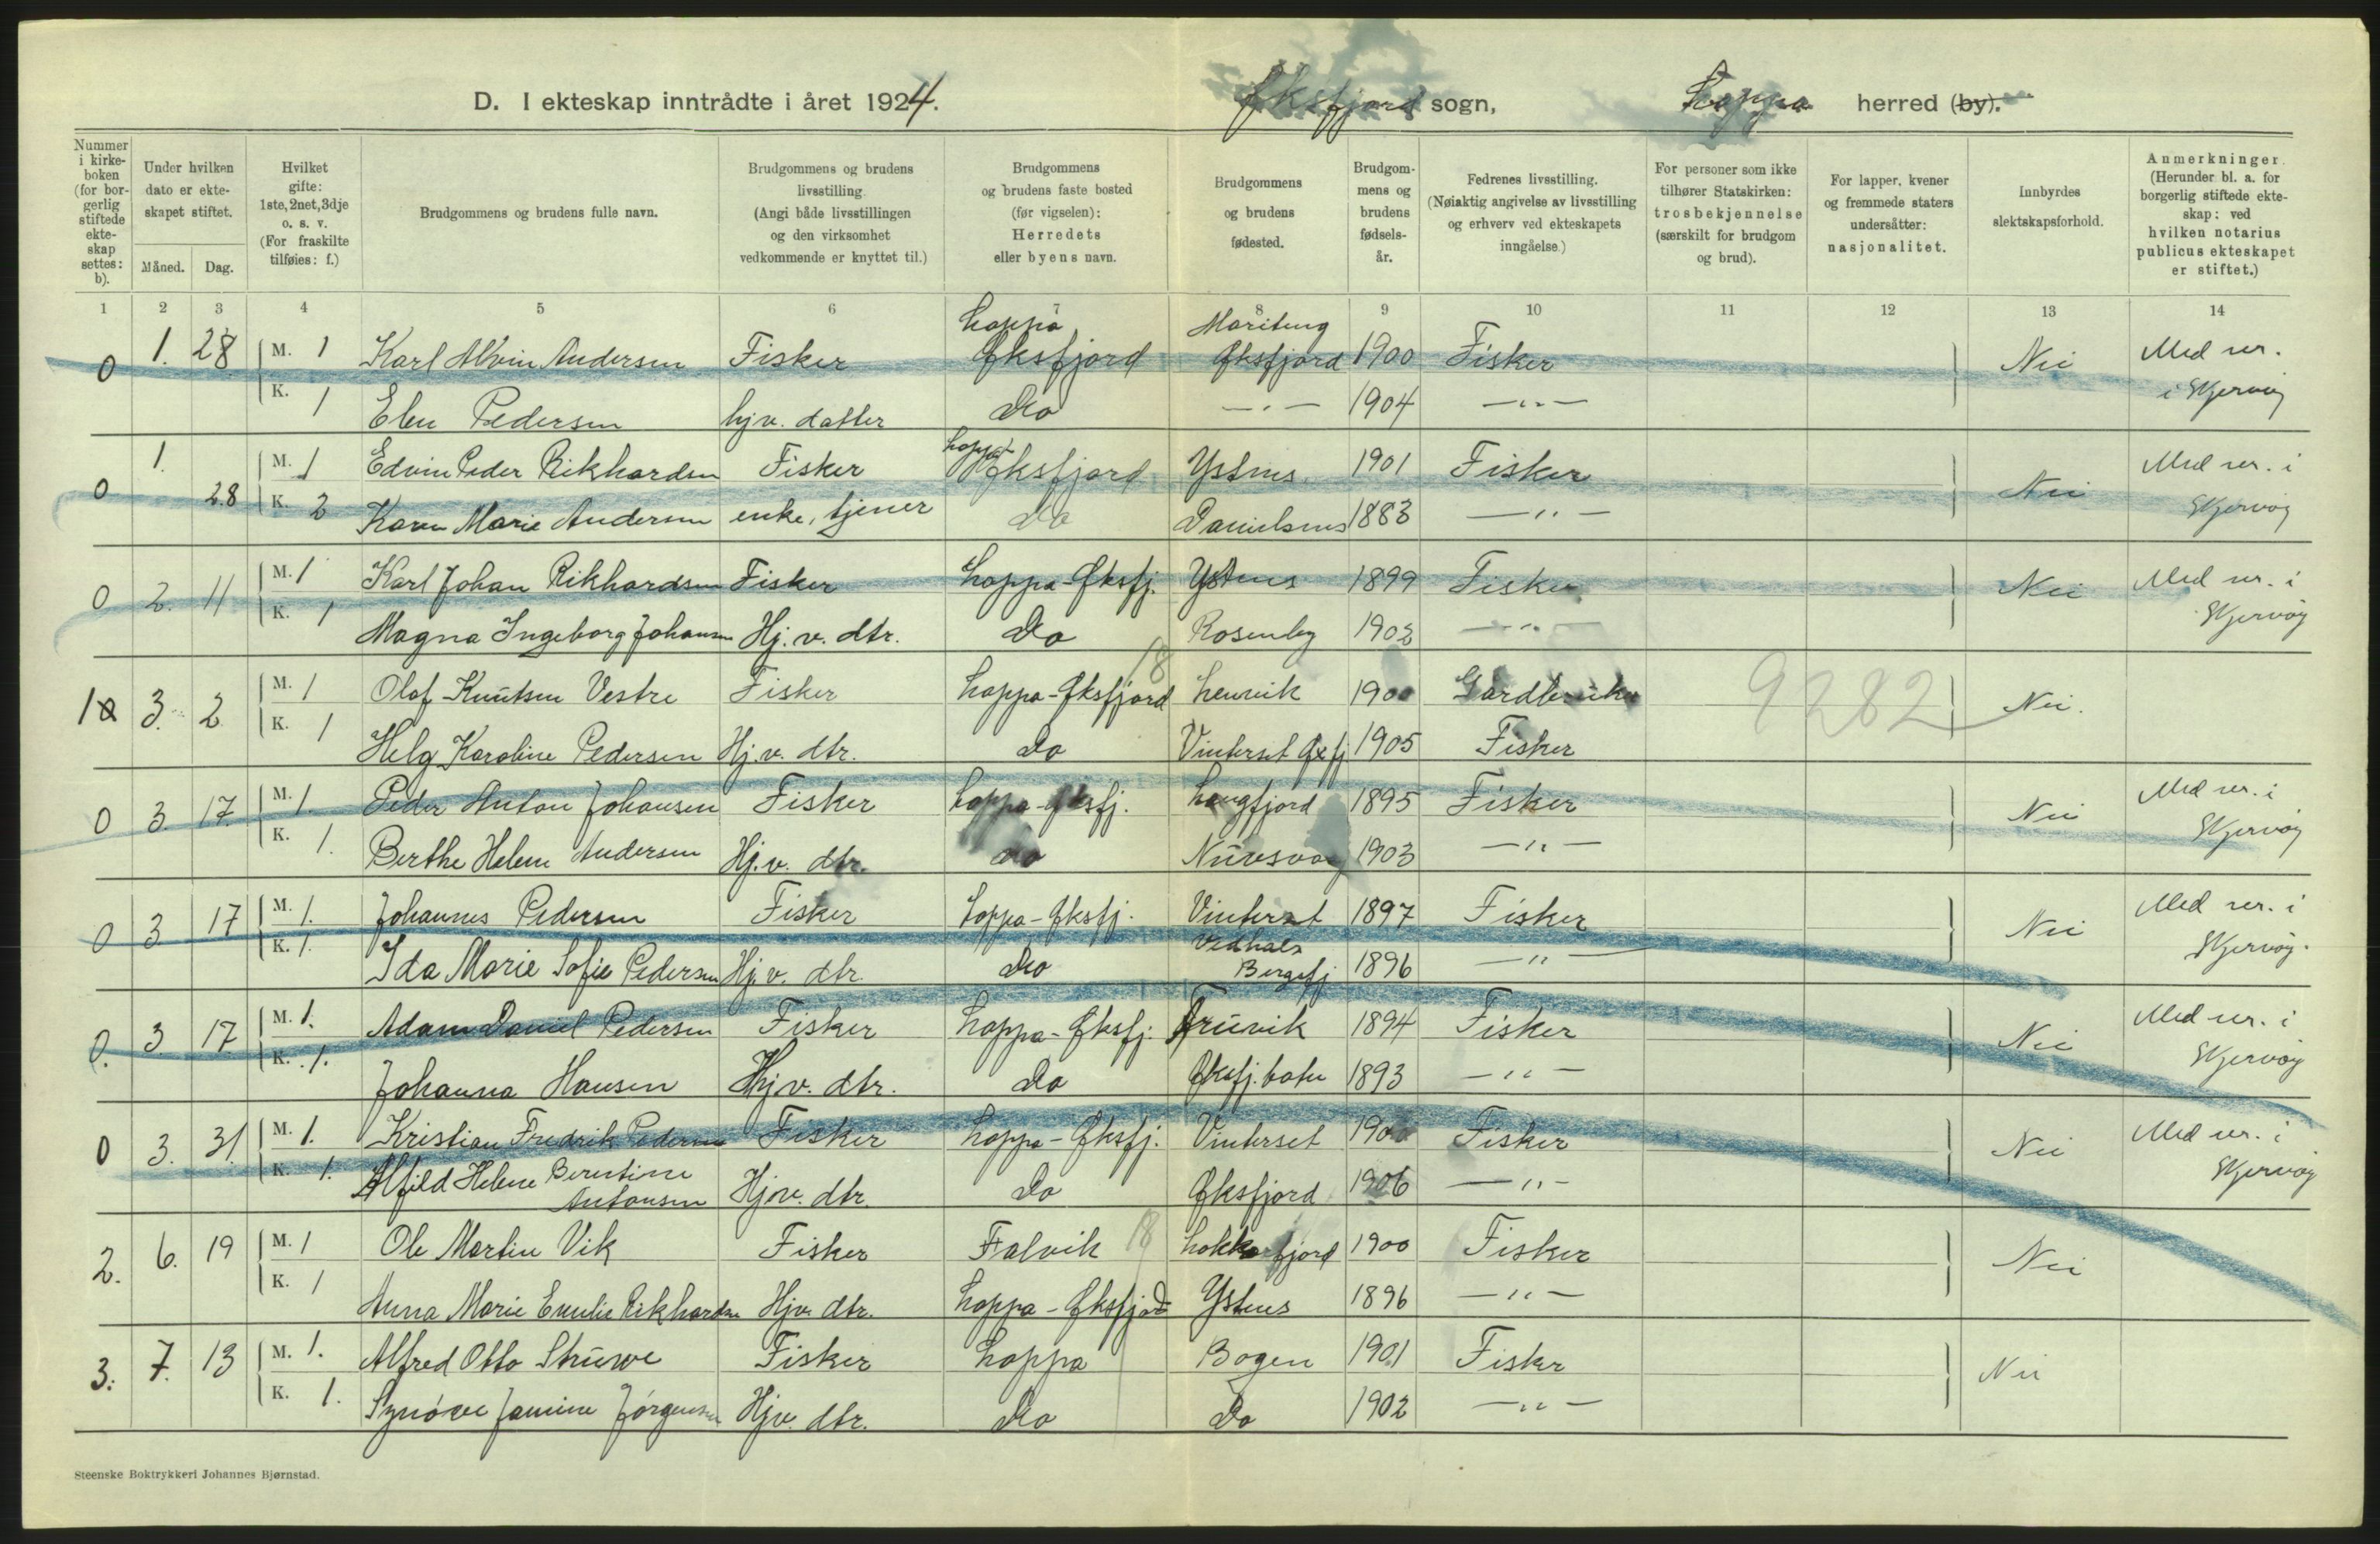 D. I ekteskap inntrådte i året 1924. Øksfjord sogn, Loppa herred (by).
Nummer i kirke- boken (for bor- gerlig stiftede ekte- skap settes: b).
Under hvilken dato er ekte- skapet stiftet.
Måned. Dag.
Hvilket gifte: 1ste, 2net, 3dje o. s. v. (For fraskilte tilføies: f.)
Brudgommens og brudens fulle navn.
Brudgommens og brudens livsstilling. (Angi både livsstillingen og den virksomhet vedkommende er knyttet til.)
Brudgommens og brudens faste bosted (før vigselen): Herredets eller byens navn.
Brudgommens og brudens fødested.
Brudgom- mens og brudens fødsels- år.
Fedrenes livsstilling. (Nøiaktig angivelse av livsstilling og erhverv ved ekteskapets inngåelse.)
For personer som ikke tilhører Statskirken: trosbekjennelse (særskilt for brudgom og brud).
For lapper, kvener og fremmede staters undersåtter: nasjonalitet.
Innbyrdes slektskapsforhold.
Anmerkninger. (Herunder bl. a. for borgerlig stiftede ekte- skap: ved hvilken notarius publicus ekteskapet er stiftet.)
1 2 3 4 5 6 7 8 9 10 11 12 13 14
Loppa Mariteng
0 1. 28 M. 1 Karl Alvin Andersen Fisker Øksfjord Øksfjord 1900 Fisker Nei Med ver. i Skjervøy
K. 1 Elen Pedersen hjv. datter Do —"— 1904 —"—
0 1. 28 M. 1 Edvin Peder Rikhardsen Fisker Loppa Øksfjord Ystnes 1901 Fisker Nei Med ver. i Skjervøy
K. 2 Karen Marie Andersen enke, tjener Do Danielsnes 1883 —"—
0 2. 11 M. 1 Karl Johan Rikhardsen Fisker Loppa-Øksfj. Ystnes 1899 Fisker Nei Med ver. i Skjervøy
K. 1 Magna Ingeborg Johansen Hj. v. dtr. Do Rosenby 1902 —"—
18
1 0 3. 2 M. 1 Olaf Knutsen Vestre Fisker Loppa-Øksfjord Lenvik 1900 Gårdbruker 9282 Nei.
K. 1 Helg Karoline Pedersen Hj. v. dtr. Do Vinterset Øxfj 1905 Fisker
0 3. 17. M. 1. Peder Anton Johansen Fisker Loppa-Øksfj. Langfjord 1895 Fisker Nei Med ver. i Skjervøy
K. 1. Berthe Helene Andersen Hj. v. dtr. Do Nuvsvåg 1903 —"—
0 3. 17 M. 1. Johannes Pedersen Fisker Loppa-Øksfj. Vinterset 1897 Fisker Nei Med ver. i Skjervøy.
K. 1. Ida Marie Sofie Pedersen Hj. v. dtr. Do Vedhals Bergsfj 1896 —"—
0. 3. 17. M. 1. Adam Daniel Pedersen Fisker Loppa-Øksfj. Truvik 1894 Fisker Nei Med ver. i Skjervøy
K. 1. Johanna Hansen Hjv. dtr. Do Øksfj. botn 1893 —"—
0 3. 31. M. 1. Kristian Fredrik Pedersen Fisker Loppa-Øksfj. Vinterset 1900 Fisker Nei Med ver. i Skjervøy
K. 1. Alfild Helene Berntine Antonsen Hjv. dtr. Do Øksfjord 1906 —"—
2. 6. 19 M. 1 Ole Martin Vik Fisker Talvik 18 Lokkarfjord 1900 Fisker Nei
K. 1 Anna Marie Emilie Rikhardsen Hjv. dtr. Loppa-Øksfjord Ystnes 1896 —"—
3. 7. 13 M. 1. Alfred Otto Struwe Fisker Loppa Bogen 1901 Fisker Nei
K. 1. Synöve Janine Jörgensen Hjv. dtr. Do Do 1902 —"—
Steenske Boktrykkeri Johannes Bjørnstad.